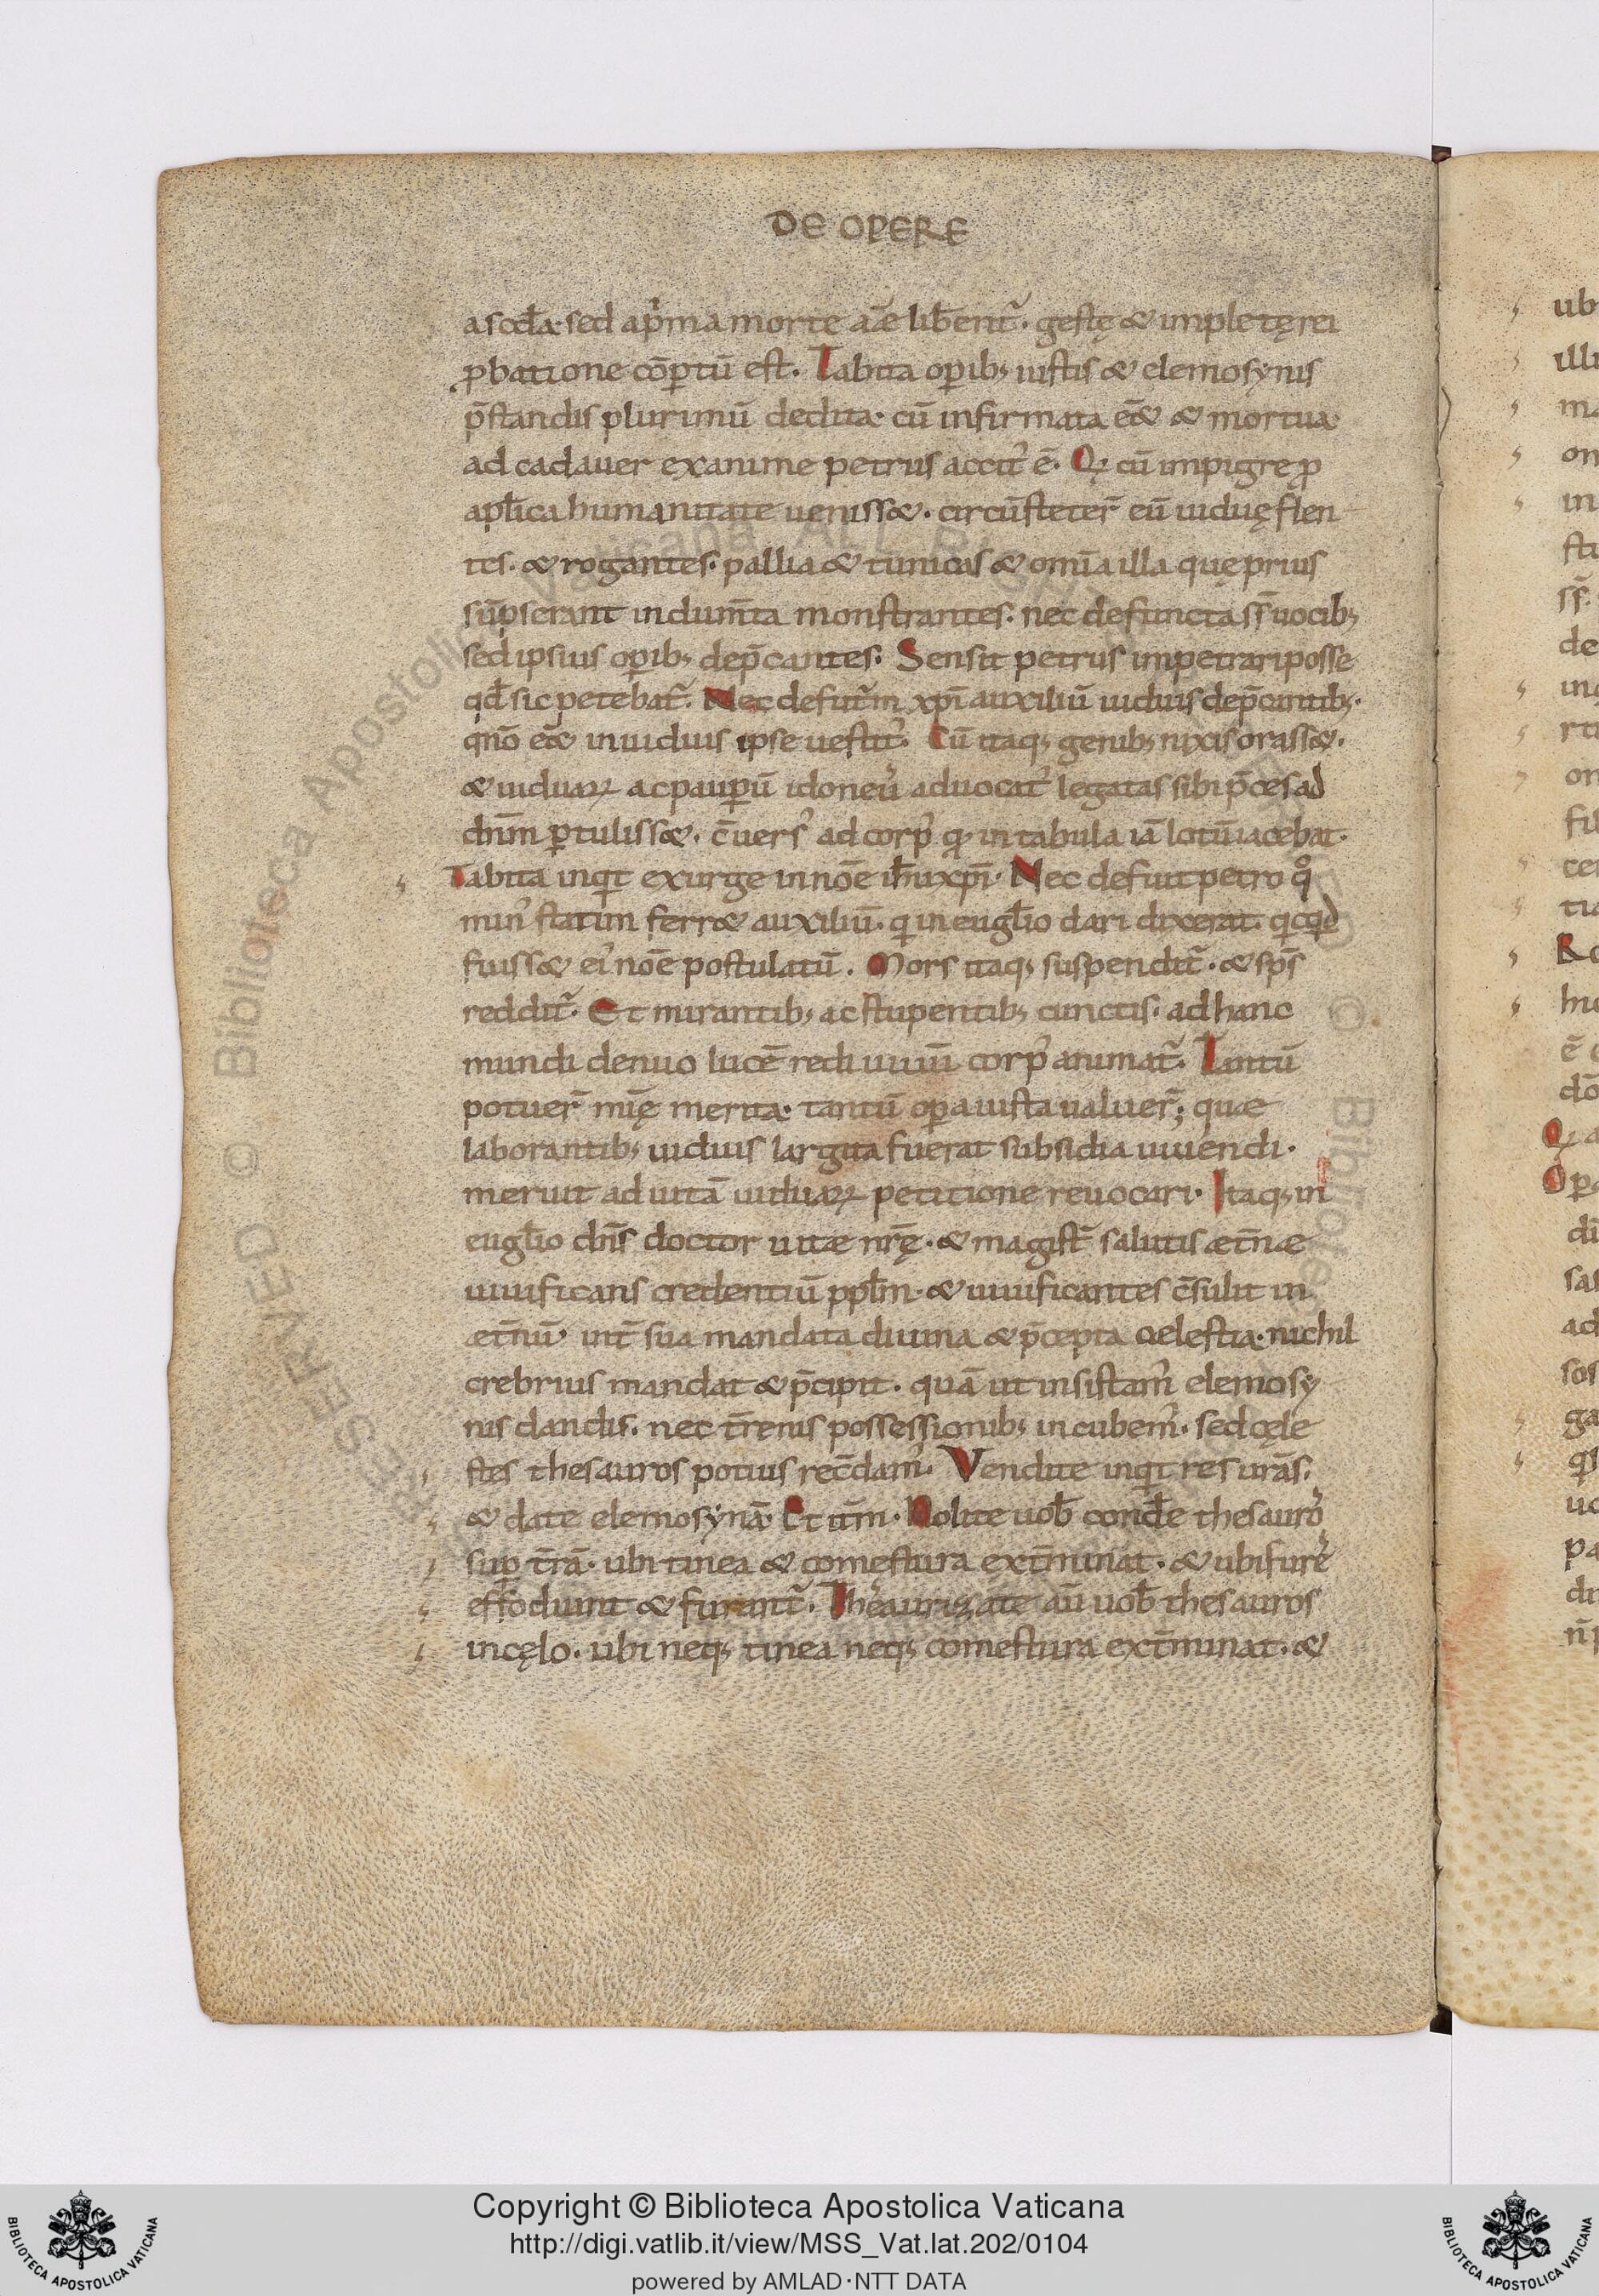 DE OPERE
a sc̄da· sed ap̓ma morte aīe liƀent᷑· gestę & impletę rei
ꝓbatione cōꝑtū est. Tabita oꝑib; iustis & elemosynis
p̄standis plurimū dedita· cū infirmata eēt & mortua·
ad cadauer exanime petrus accit᷒ ē. Qꝫ cū impigre ꝓ
apl̄ica humanitate uenisset. circūsteter̄ eū uiduę flen
tes· & rogantes· pallia & tunicas & omīa illa quę prius
sūpserant indum̄ta monstrantes· nec defunctā ss̄ uocib;
sed ipsius oꝑib; dep̄cantes. Sensit petrus impetrari posse
qđ sic petebat᷑. Nec defutur̄m xp̄i auxiliū uiduis dep̄cantib;·
qn̄o eēt in uiduis ipse uestit᷒. Cū itaq; genib; nixis orasset·
& uiduaꝝ ac pauꝑū idone᷒ aduocat᷒ legatas sibi p̄ces ad
dn̄m ꝑtulisset. c̄uers᷒ ad corp᷒ qđ in tabula iā lotū iacebat·
Tabita inqͥt exurge in nōe ih̄u xp̄i· Nec defuit petro qͦ
min᷒ statim ferret auxiliū· qͥ in eugl̄io dari dixerat· qͥcqͥd
fuisset ei᷒ nōe postulatū. Mors itaq; suspendit᷑· & sp̄s
reddit᷑. Et mirantib; ac stupentib; cunctis· ad hanc
mundi denuo lucē rediuiuū corp᷒ animat᷑. Tantū
potuer̄ mīę merita· tantū oꝑa iusta ualuer̄; quae
laborantib; uiduis largita fuerat subsidia uiuendi·
meruit ad uitā uiduaꝝ petitione reuocari· Itaq; in
eugl̄io dn̄s doctor uitae nr̄ę· & magist̄ salutis aet̄nae
uiuificans credentiū ppl̄m· & uiuificantes c̄sulit in
aet̄nū· int̄ sua mandata diuina & p̄cepta caelestia· nichil
crebrius mandat & p̄cipit. quā ut insistam᷒ elemosy
nis dandis· nec t̄renis possessionib; incubem᷒· sed cęle
stes thesauros potius rec̄dam᷒. Vendite inqͥt res ur̄as·
& date elemosynā· Et it̄m· Nolite uob̄ cond̄e thesauro᷒
suꝑ t̄rā· ubi tinea & comestura ext̄minat· & ubi fure᷒
effodiunt & furant᷑. Thesaurizate aū uob̄ thesauros
in cęlo· ubi neq; tinea neq; comestura ext̄minat· &
Copyright © Biblioteca Apostolica Vaticana
http://digi.vatlib.it/view/MSS_Vat.lat.202/0104
powered by AMLAD·NTT DATA
BIBLIOTECA APOSTOLICA VATICANA
BIBLIOTECA APOSTOLICA VATICANA